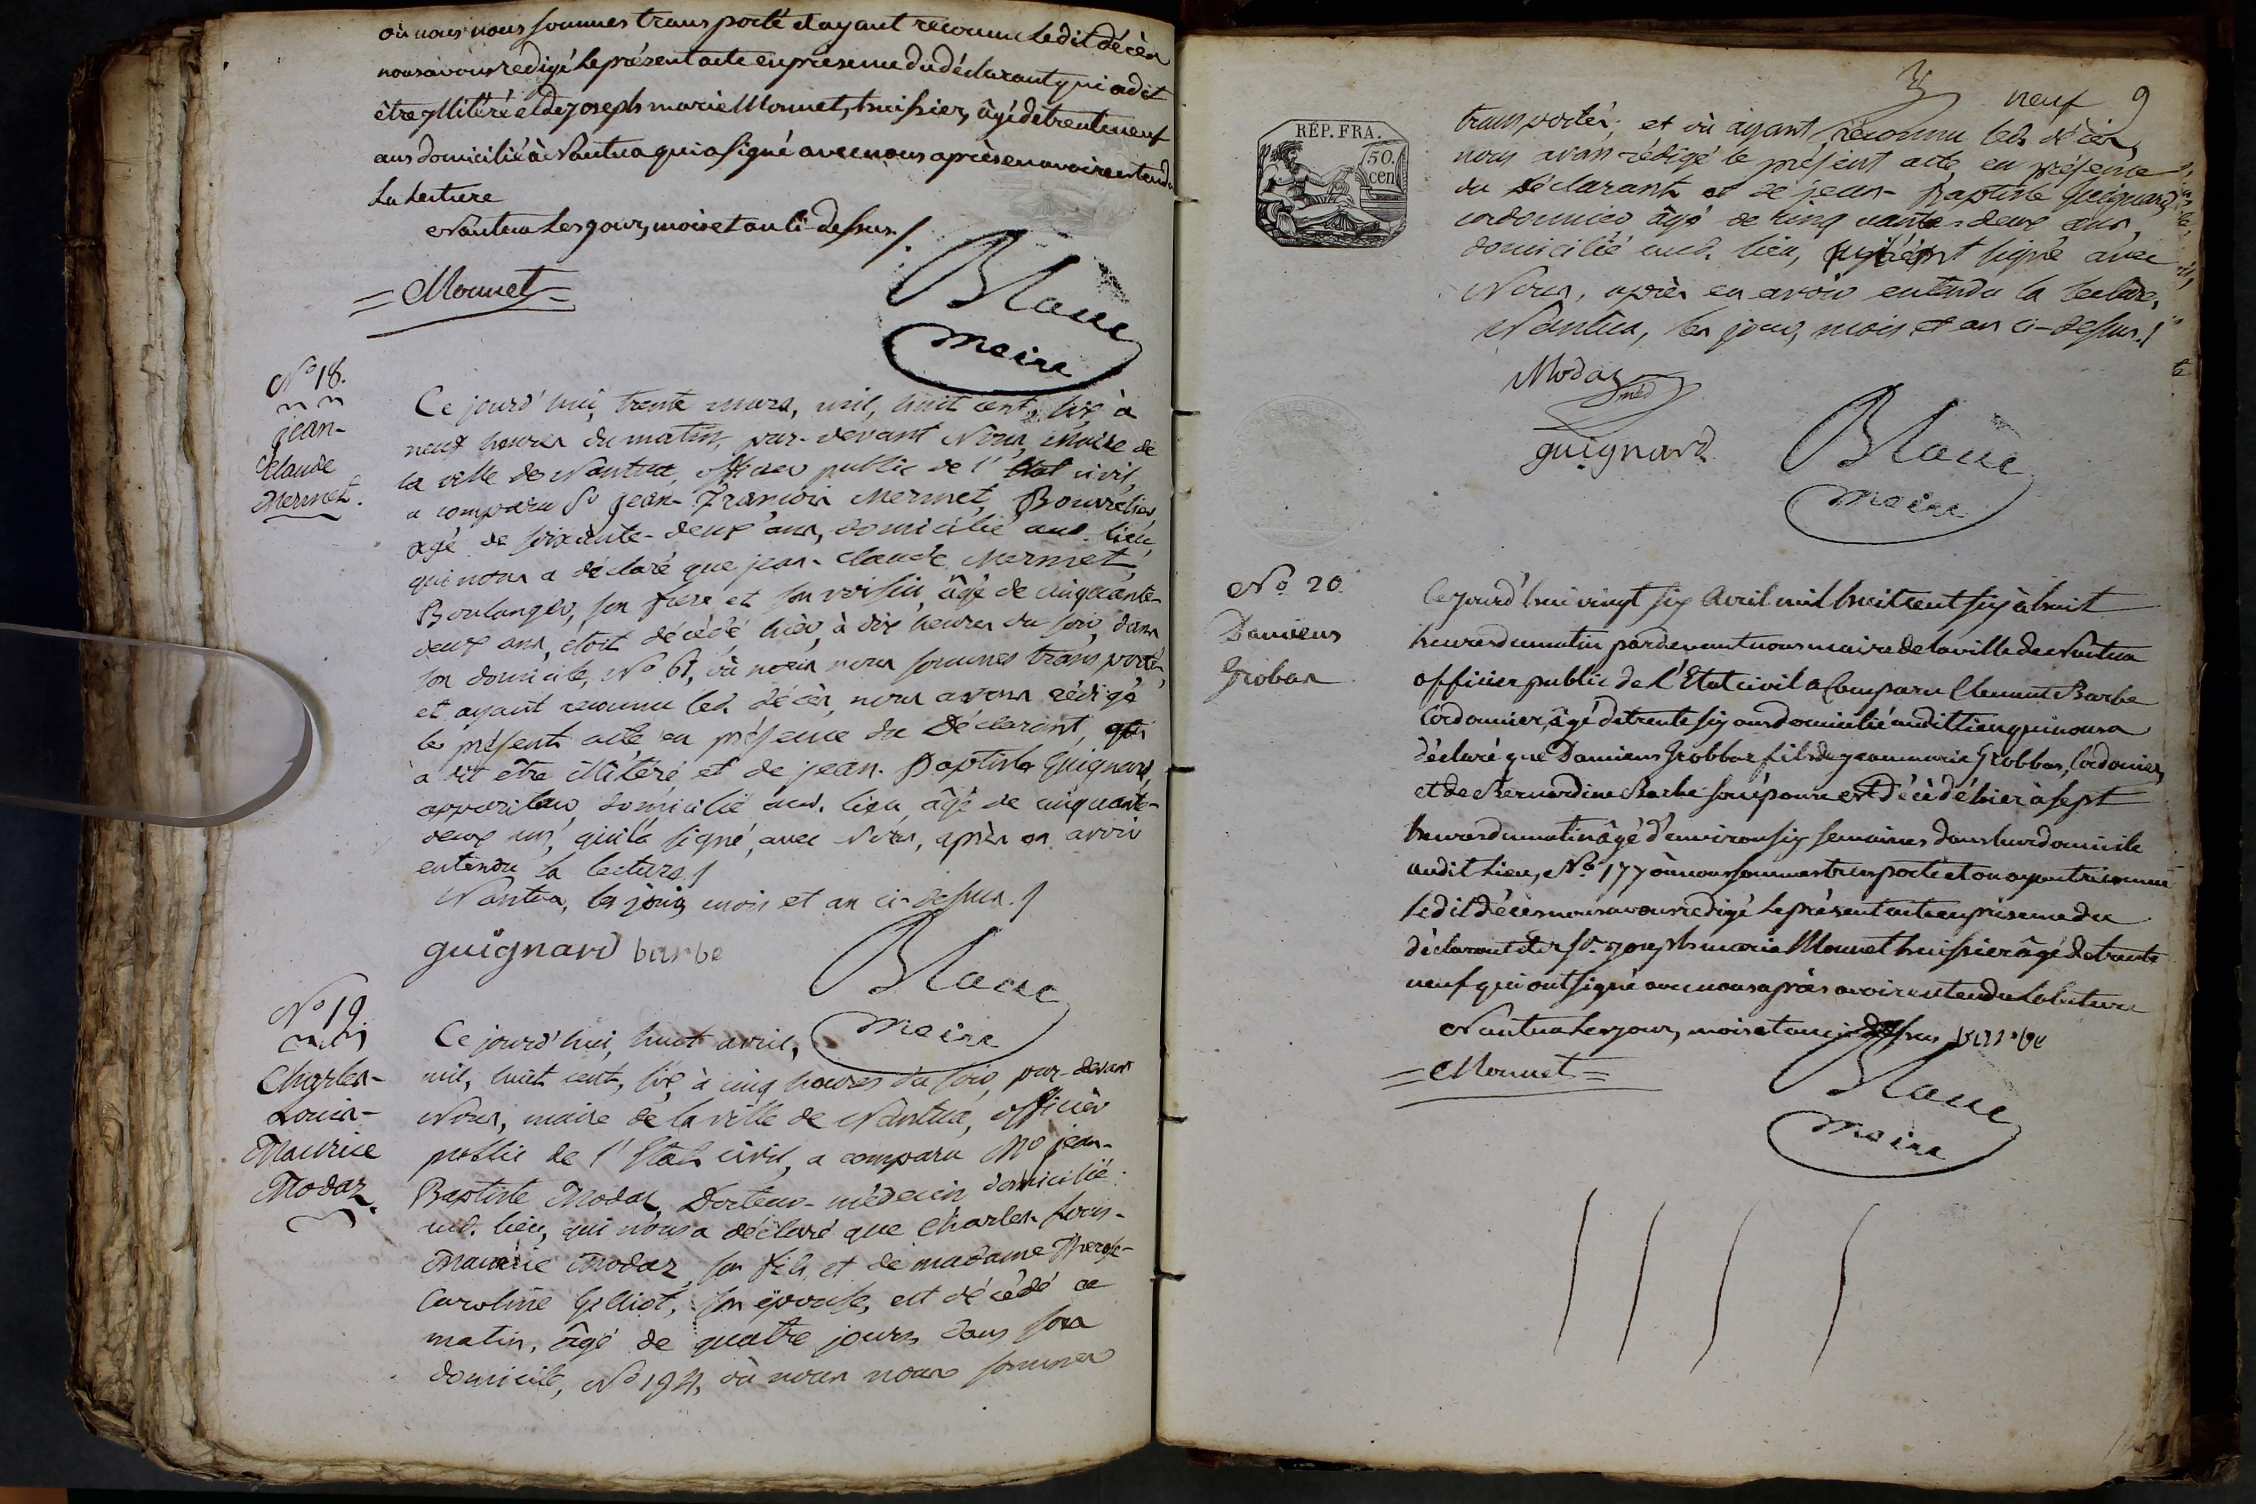 où nous nous sommes transporté et ayant reconnu ledit décès
nous avons rédigé le présent acte en presence du déclarant qui a dit
être illitéré et de joseph marie Monnet, huissier, âgé de trente neuf
ans domicilié à Nantua qui a signé avec nous après en avoir entendu
la lecture
Nantua les jour, mois et an ci-dessus /.
= Monnet =
Blanc
maire
N° 18.
jean-
Claude
Mermet.
Ce jourd'hui, trente mars, mil, huit cent, six à
neuf heures du matin, par-devant Nous, Maire de
la ville de Nantua, officier public de l'état civil,
a comparu Sr jean-François Mermet, Bourrelier
agé de soixante-deux ans, domicilié aud. lieu,
qui nous a déclaré que jean-Claude Mermet,
Boulanger, son frere et son voisin, âgé de cinquante-
deux ans, étoit décédé hier, à dix heures du soir, dans
son domicile, N° 61, où nous nous sommes transportés,
et ayant reconnu led. décès, nous avons rédigé
le présent acte en présence du Déclarant, qui
a dit être illitéré, et de jean-Baptiste Guignard,
appariteur domicilié aud. lieu âgé de cinquante-
deux ans, qui a signé, avec Nous, après en avoir
entendu la lecture /
Nantua, les jour, mois et an ci-dessus. /
guignard barbe
Blanc
maire
N° 19
Charles-
Louis-
Maurice
Modaz.
Ce jourd'hui, huit avril,
mil, huit cent, six à cinq heures du soir, par-devant
Nous, maire de la ville de Nantua, officier
public de l'état civil, a comparu Me jean-
Baptiste Modaz, Docteur-médecin domicilié
aud. lieu, qui nous a déclaré que Charles-Louis-
Maurice Modaz, son fils, et de madame Therese-
Caroline Gilliot, son épouse, est décédé ce
matin, âgé de quatre jours dans son
domicile, N° 194, où nous nous sommes
neuf 9
RÉP. FRA.
50.
cen
transportés, et où ayant reconnu led. décès,
nous avons rédigé le présent acte en présence
du Déclarant et de jean-Baptiste Guignard,
cordonnier âgé de cinquante-deux ans,
domicilié aud. lieu, qui ont signé avec
Nous, après en avoir entendu la lecture,
Nantua, les jour, mois et an ci-dessus. /
Modaz
méd
guignard
Blanc
maire
N° 20
Damiens
Groban
Cejourd'hui vingt six Avril mil huit cent six à huit
heures du matin pardevant nous maire de la ville de Nantua
officier public de l'Etat civil a Comparu Clement Barbe
Cordonnier, âgé de trente six ans domicilié audit lieu qui nous a
déclaré que Damiens Grobbon fils de jean marie Grobbon, Cordonier,
et de Bernardine Barbe son épouse est Décédé hier à sept
heures du matin âgé d'environ six semaines dans leur domicile
audit lieu, N° 177 où nous sommes transporté et ou ayant reconnu
ledit décès nous avons redigé le présent acte en présence du
déclarant et de Sr joseph marie Monnet huissier âgé de trente
neuf qui ont signé avec nous après avoir entendu la lecture
Nantua les jour, mois et an ci dessus barbe
= Monnet =
Blanc
maire